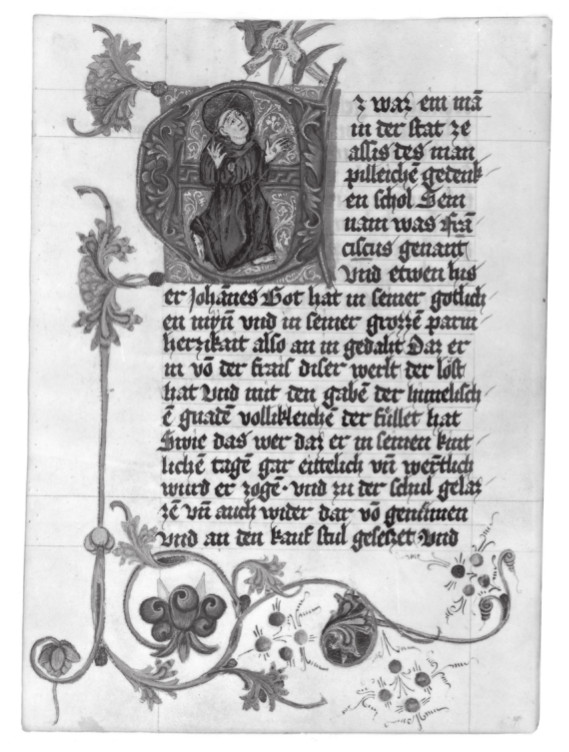 Ez waz ein mā
in der stat ze
assis des man
pilleichē gedenk
en schol Sein
nam was Frā
ciscus genant
Vnd etwen hus
er Johānes Got hat in seiner gotlich
en mynn vnd in seiner grozzē parm
herzikait also an in gedaht Daz er
in vō der frais diser werlt der lōst
hat Vnd mit den gabē der himelisch
ē gnadē vollikleichē der fūllet hat
Swie das wer daz er in seinen kint
lichē tagē gar eittelich vn̄ wertlich
wurd er zogē · vnd zu der schul gelaz
zē vn̄ auch wider dar vō genūmen
vnd an den kauf stul gesetzet Vnd